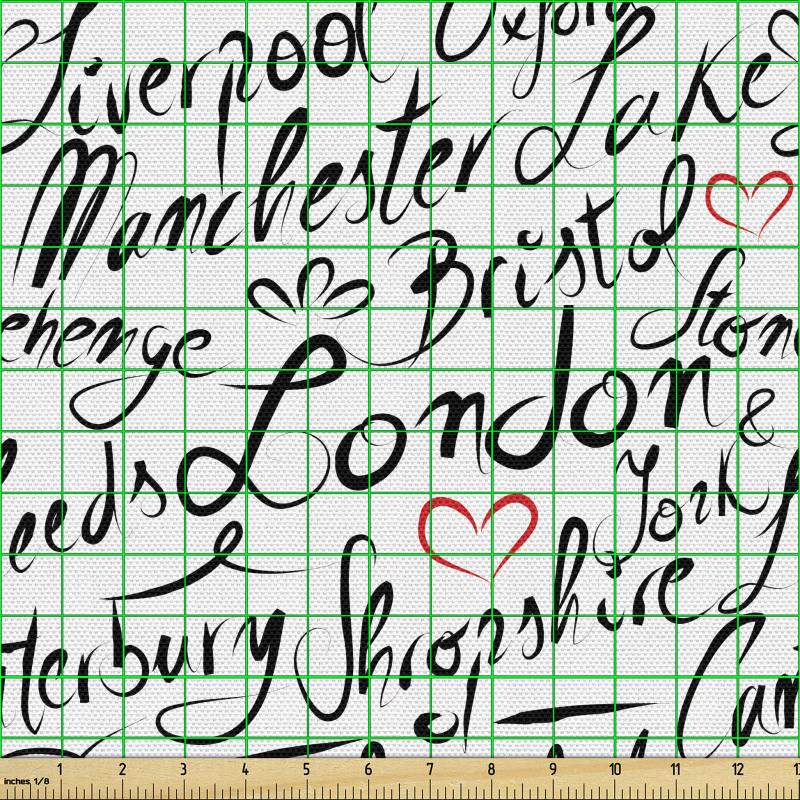 Liverpool Oxford
Manchester Lake
Bristol
ehenge Stone
London &
eeds York
terbury Shropshire
of Can
1 2 3 4 5 6 7 8 9 10 11 12 13
inches, 1/8